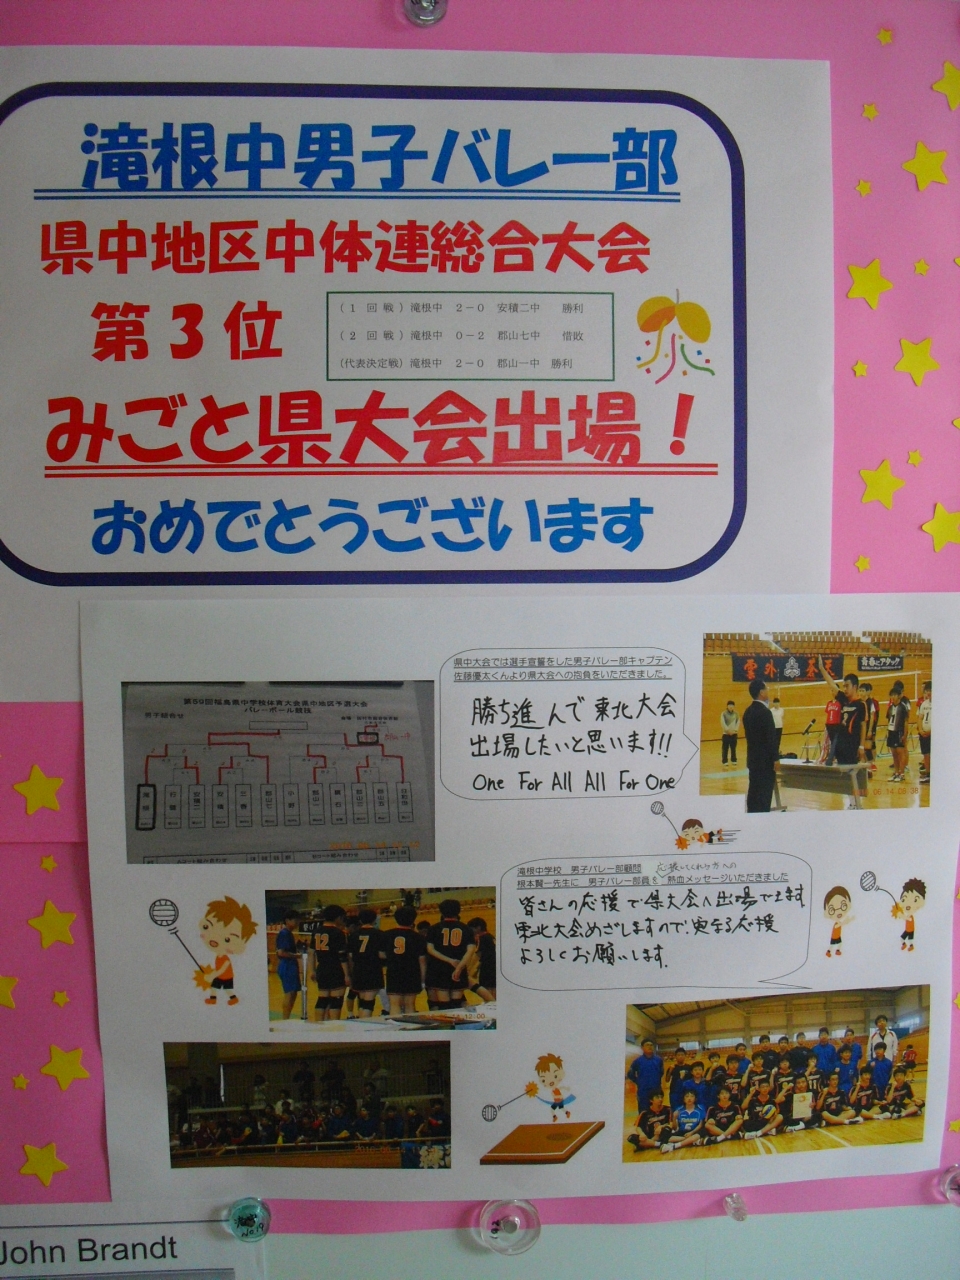 滝根中男子バレー部
県中地区中体連総合大会
第3位
(1回戦)滝根中 2-0 安積二中 勝利
(2回戦)滝根中 0-2 郡山七中 惜敗
(代表決定戦)滝根中 2-0 郡山一中 勝利
みごと県大会出場！
おめでとうございます
県中大会では選手宣誓をした男子バレー部キャプテン
佐藤優太くんより県大会への抱負をいただきました。
勝ち進んで東北大会
出場したいと思います!!
One For All All For One
雲外蒼天
青春にアタック
第59回福島県中学校体育大会県中地区予選大会
バレーボール競技
男子組合せ
滝根中学校 男子バレー部顧問 応援してくれた方への
根本賢一先生に 男子バレー部員を 熱血メッセージいただきました
皆さんの応援で県大会へ出場できます
東北大会めざしますので、更なる応援
よろしくお願いします。
12
7
9
10
John Brandt